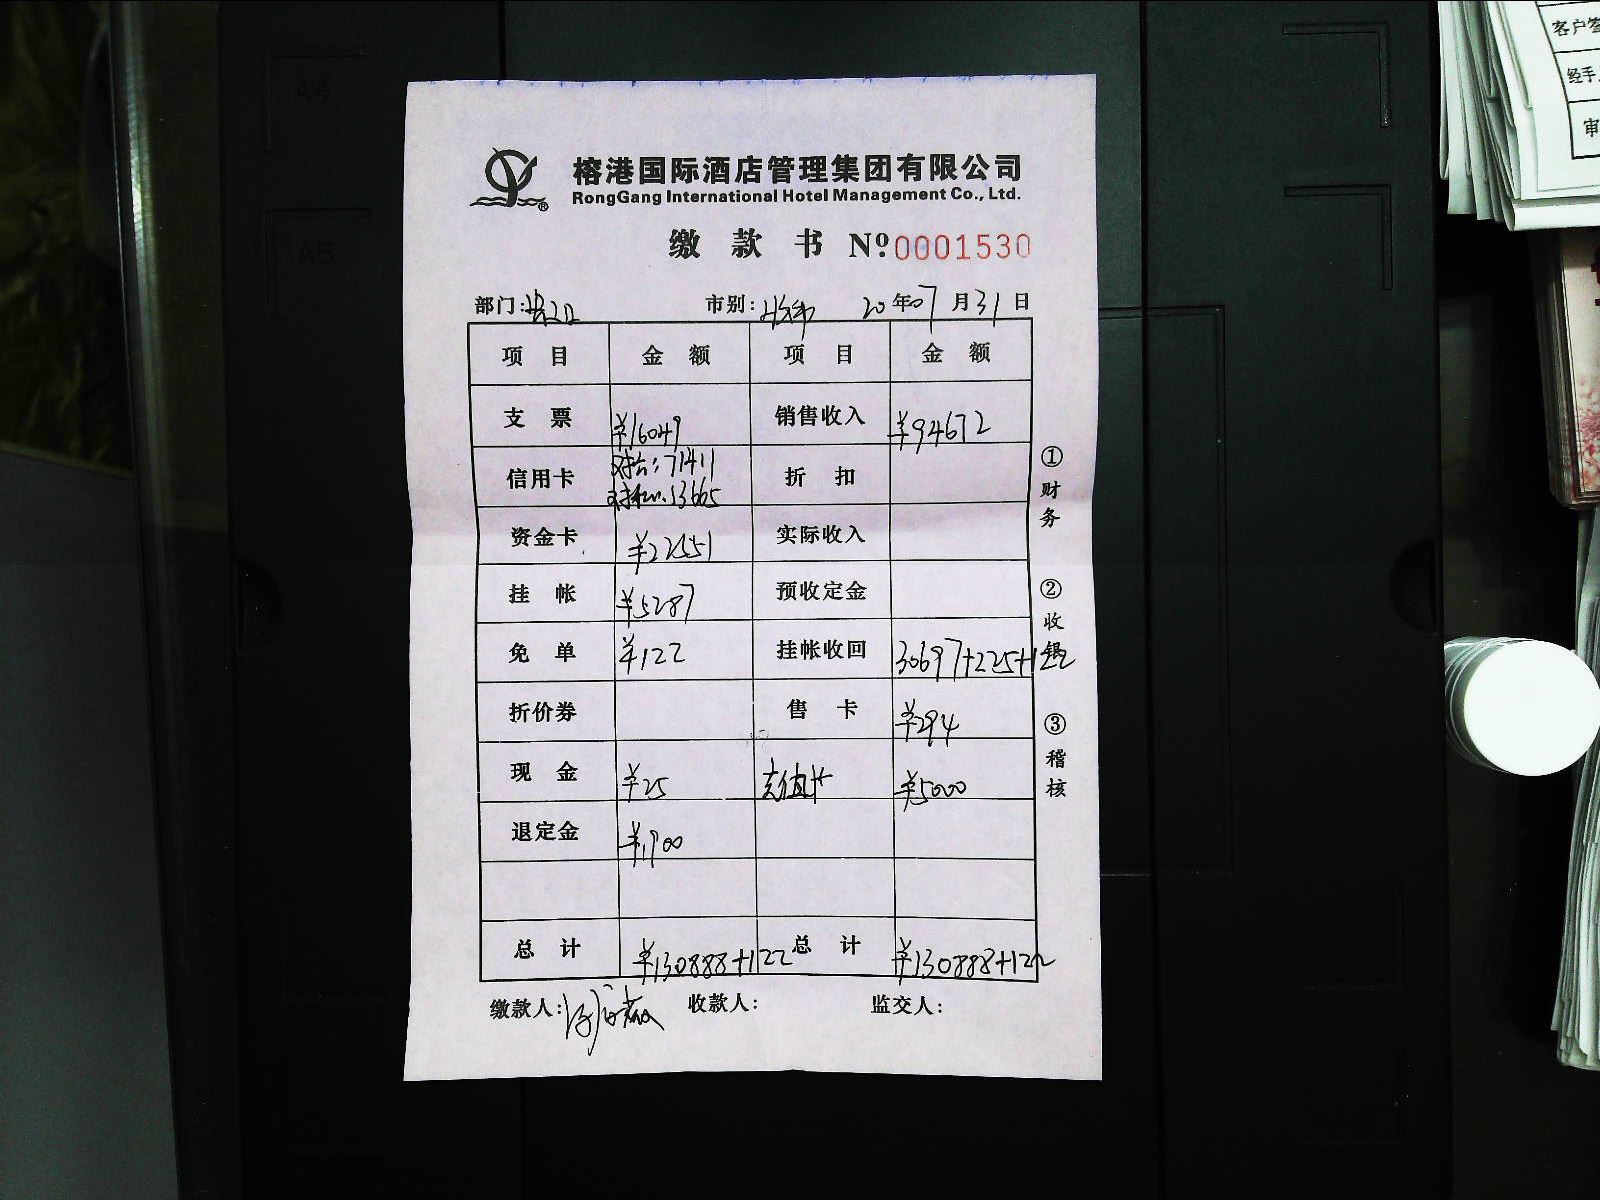 客户签
经手人
审
A4
A5
榕港国际酒店管理集团有限公司
RongGang International Hotel Management Co., Ltd.
缴款书 Nº:0001530
部门: 市别: 20年07月31日
项目 金额 项目 金额
支票 ¥16049 销售收入 ¥94672
信用卡 71411 折扣
13665
资金卡 ¥22551 实际收入
挂帐 ¥5287 预收定金
免单 ¥122 挂帐收回 30697+225+122
折价券 售卡 ¥294
现金 ¥25 充值卡 ¥5000
退定金 ¥1900
总计 ¥130888+122 总计 ¥130888+122
缴款人: 收款人: 监交人:
①财务
②收银
③稽核